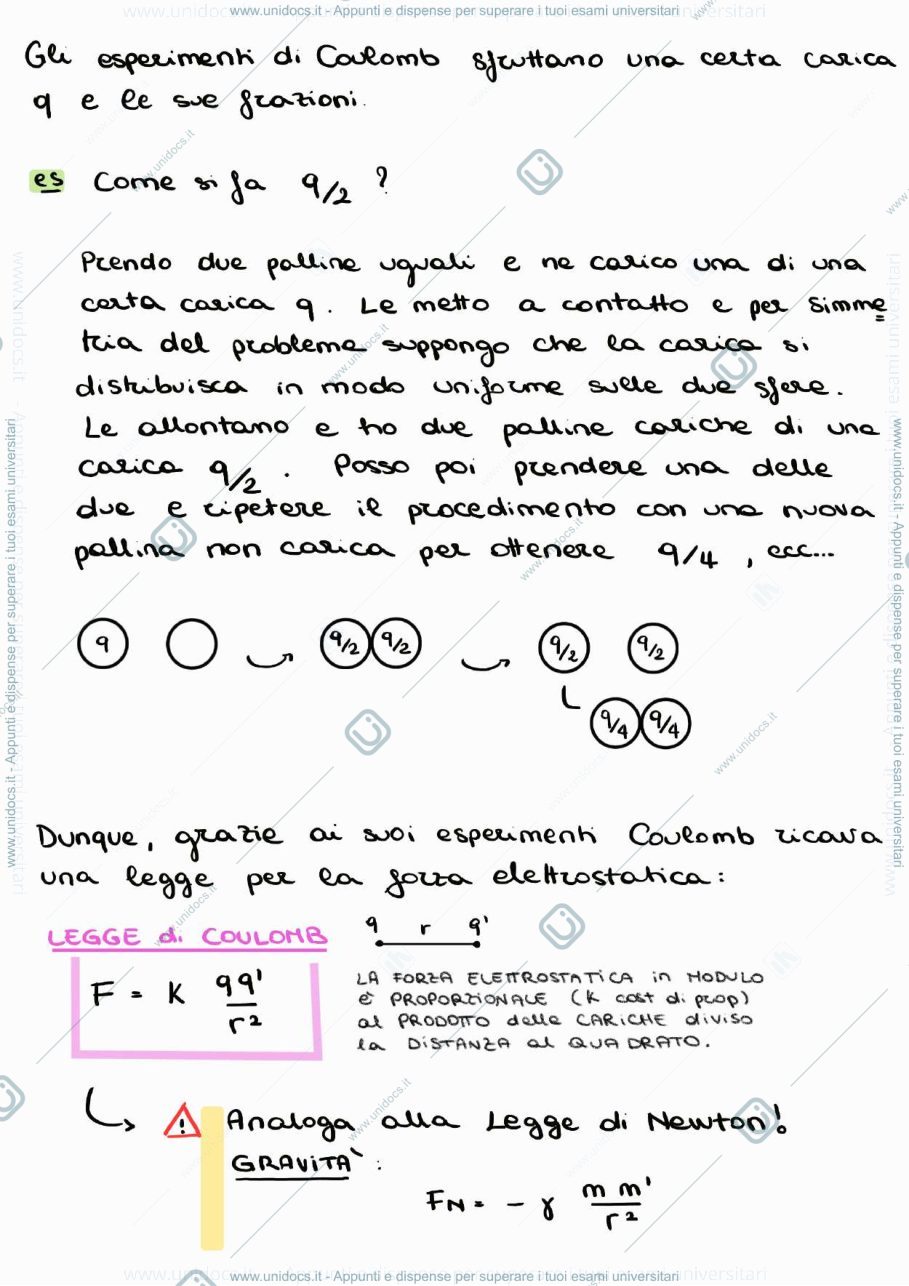 www.unidocs.it - Appunti e dispense per superare i tuoi esami universitari
Gli esperimenti di Coulomb sfruttano una certa carica
q e le sue frazioni.
es Come si fa q/2 ?
Prendo due palline uguali e ne carico una di una
certa carica q. Le metto a contatto e per simme
tria del problema suppongo che la carica si
distribuisca in modo uniforme sulle due sfere.
Le allontano e ho due palline cariche di una
carica q/2. Posso poi prendere una delle
due e ripetere il procedimento con una nuova
pallina non carica per ottenere q/4, ecc...
q q/2 q/2 q/2 q/2
q/4 q/4
Dunque, grazie ai suoi esperimenti Coulomb ricava
una legge per la forza elettrostatica:
LEGGE di COULOMB q r q'
F = K qq'/r²
LA FORZA ELETTROSTATICA in MODULO
è PROPORZIONALE (K cost di prop)
al PRODOTTO delle CARICHE diviso
la DISTANZA al QUADRATO.
! Analoga alla Legge di Newton!
GRAVITA' :
FN = - γ m m'/r²
www.unidocs.it - Appunti e dispense per superare i tuoi esami universitari
www.unidocs.it - Appunti e dispense per superare i tuoi esami universitari
www.unidocs.it - Appunti e dispense per superare i tuoi esami universitari